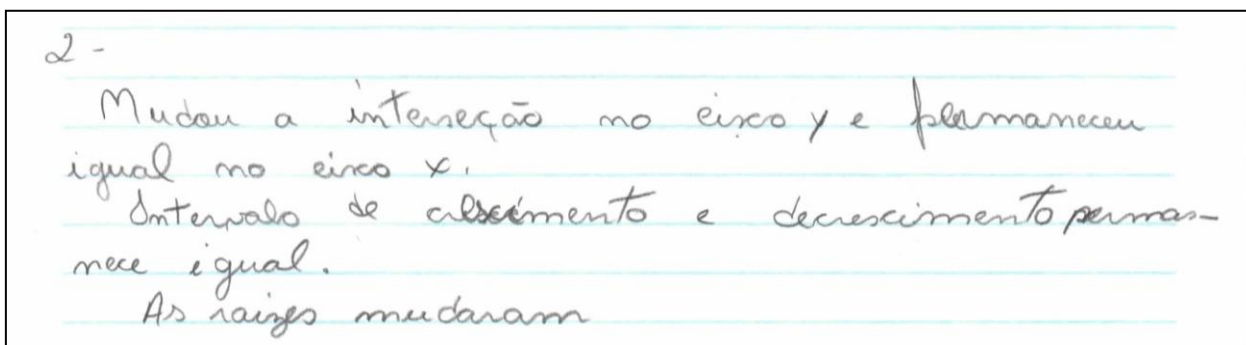 2 -
Mudou a interseção no eixo y e permaneceu
igual no eixo x.
Intervalo de crescimento e decrescimento perma-
nece igual.
As raizes mudaram